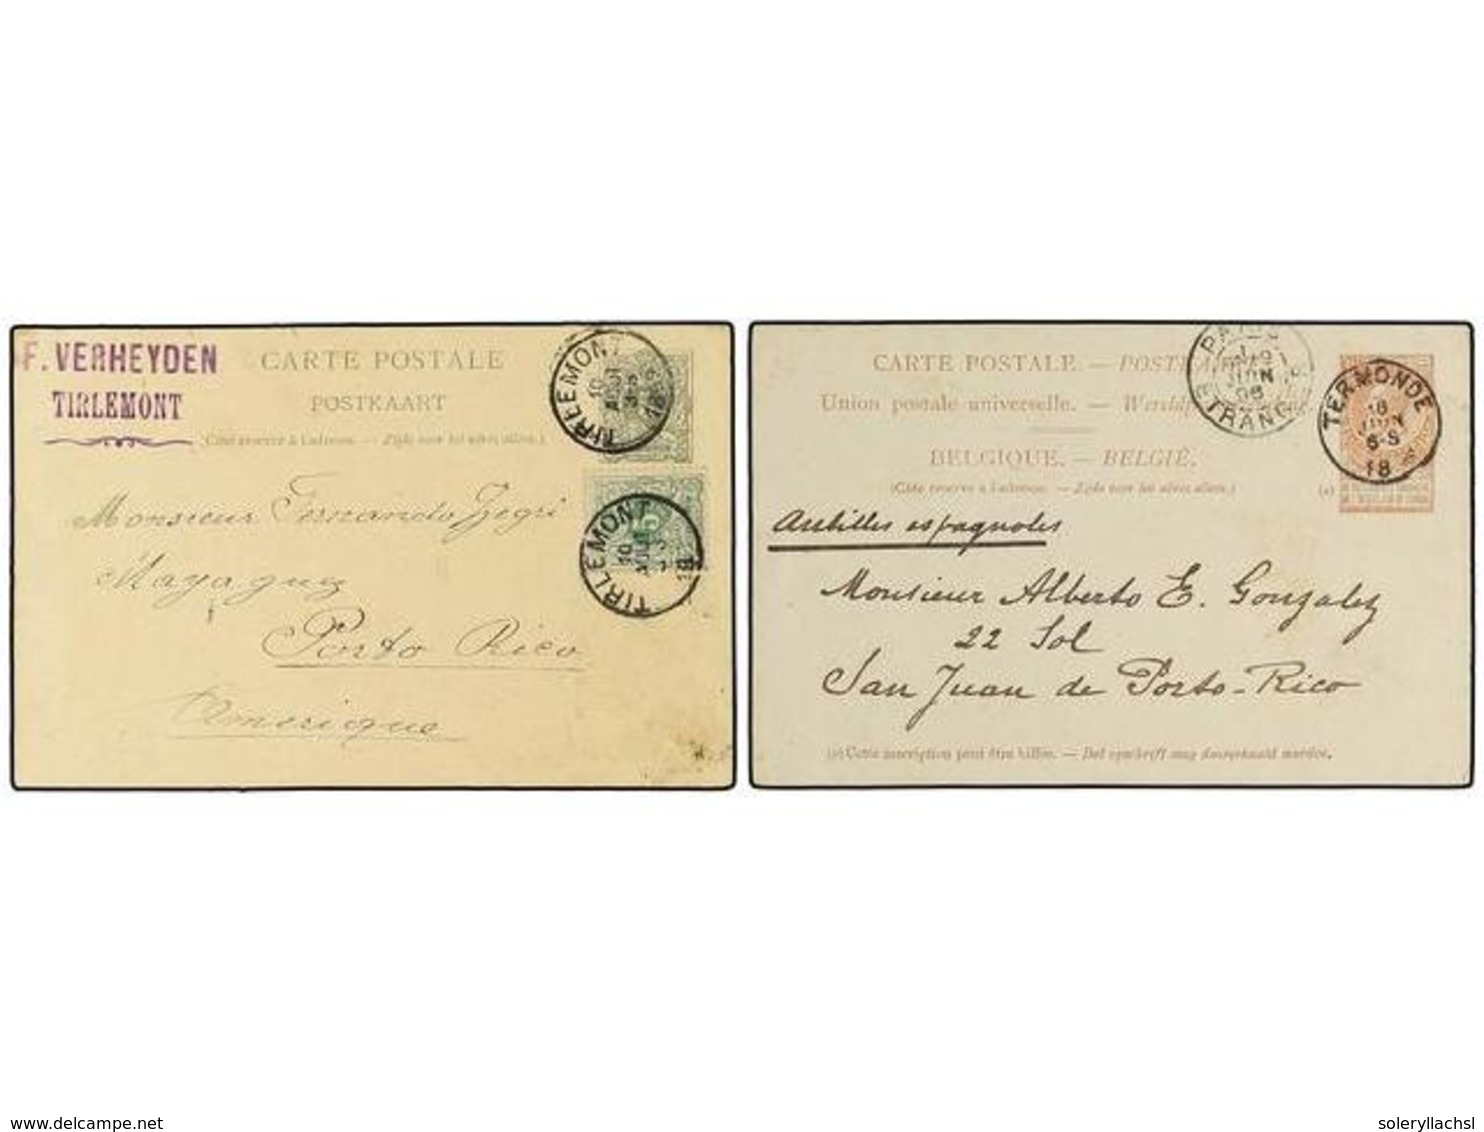 F. VERHEYDEN
TIRLEMONT
CARTE POSTALE
POSTKAART
(Côté réservé à l'adresse. — Zijde voor het adres alleen.)
TIRLEMONT
10
3-S
5
TIRLEMONT
10
18
Monsieur Fernando Zegri
Mayaguez
Porto Rico
Amérique
CARTE POSTALE. — POSTKAART
Union postale universelle. —
BELGIQUE. — BELGIË.
(Côté réservé à l'adresse. — Zijde voor het adres alleen.)
(a)
PARIS
JUIN
ETRANG
TERMONDE
18
JUIN
6-S
18
Antilles espagnoles
Monsieur Alberto E. Gonzalez
22 Sol
San Juan de Porto-Rico
(a) Cette inscription peut être biffée. — Dit opschrift mag doorgehaald worden.
delcampe.net
soleryllachsl